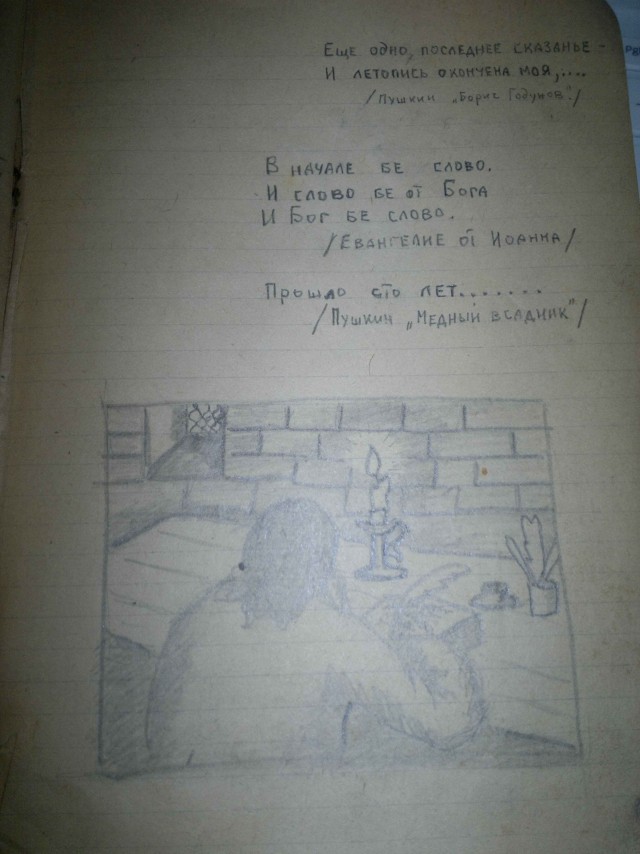 Еще одно, последнее сказанье -
И летопись окончена моя,....
/Пушкин „Борис Годунов"./
В начале бе слово.
И слово бе от Бога
И Бог бе слово.
/Евангелие от Иоанна/
Прошло сто лет.......
/Пушкин „Медный всадник"/